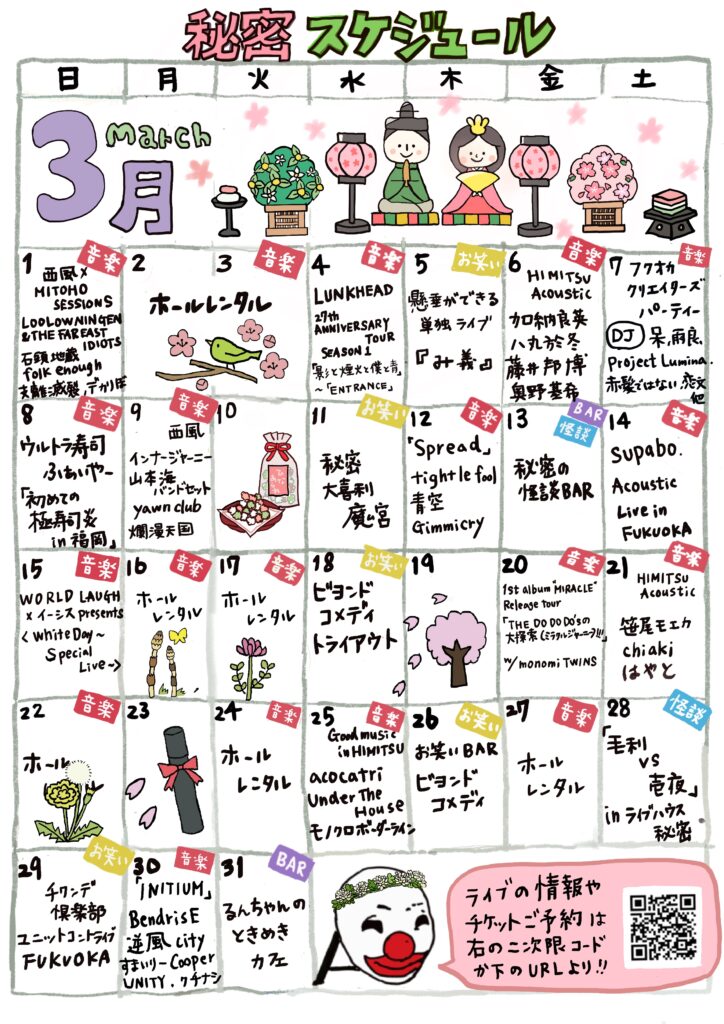 秘密 スケジュール
日 月 火 水 木 金 土
3月 March
1 音楽
西風×
MITOHO
SESSIONS
LOOLOWNINGEN
& THE FAR EAST
IDIOTS
石頭地蔵
folk enough
2
3 音楽
ホールレンタル
4 音楽
LUNKHEAD
27th
ANNIVERSARY
TOUR
SEASON1
「影と煙火と僕と青」
~「ENTRANCE」
5 お笑い
懸垂ができる
単独ライブ
『み義』
6 音楽
HIMITSU
Acoustic
加納良英
八丸於冬
藤井邦博
奥野基希
7 音楽
フクオカ
クリエイターズ
パーティー
DJ 呆、雨良、
Project Lumina.
赤髪ではない 恋文
他
8 音楽
ウルトラ寿司
ふぁいやー
「初めての
極寿司炎
in 福岡」
9 音楽
西風
インナージャーニー
山本海
バンドセット
yawn club
爛漫天国
10
11 お笑い
秘密
大喜利
魔宮
12 音楽
「Spread」
tight le fool
青空
Gimmicry
13 BAR
怪談
秘密の
怪談BAR
14 音楽
Supabo.
Acoustic
Live in
FUKUOKA
15 音楽
WORLD LAUGH
×イーシス presents
<White Day~
Special
Live~>
16 音楽
ホール
レンタル
17 音楽
ホール
レンタル
18 お笑い
ビヨンド
コメディ
トライアウト
19
20 音楽
1st album "MIRACLE"
Release tour
「THE DO DO DO'sの
大探索(ミラクルジャーニー)!!!」
w/ monomi TWINS
21 音楽
HIMITSU
Acoustic
笹尾モエカ
chiaki
はやと
22 音楽
ホール
23
24 音楽
ホール
レンタル
25 音楽
Good music
in HIMITSU
acocatri
Under The
House
モノクロボーダーライン
26 お笑い
お笑いBAR
ビヨンド
コメディ
27 音楽
ホール
レンタル
28 怪談
「毛利
VS
壱夜」
in ライブハウス
秘密
29 お笑い
チワンデ
倶楽部
ユニットコントライブ
FUKUOKA
30 音楽
「INITIUM」
BendrisE
逆風city
すまいりーCooper
UNITY. クチナシ
31 BAR
るんちゃんの
ときめき
カフェ
ライブの情報や
チケットご予約は
右の二次限コード
か下のURLより!!